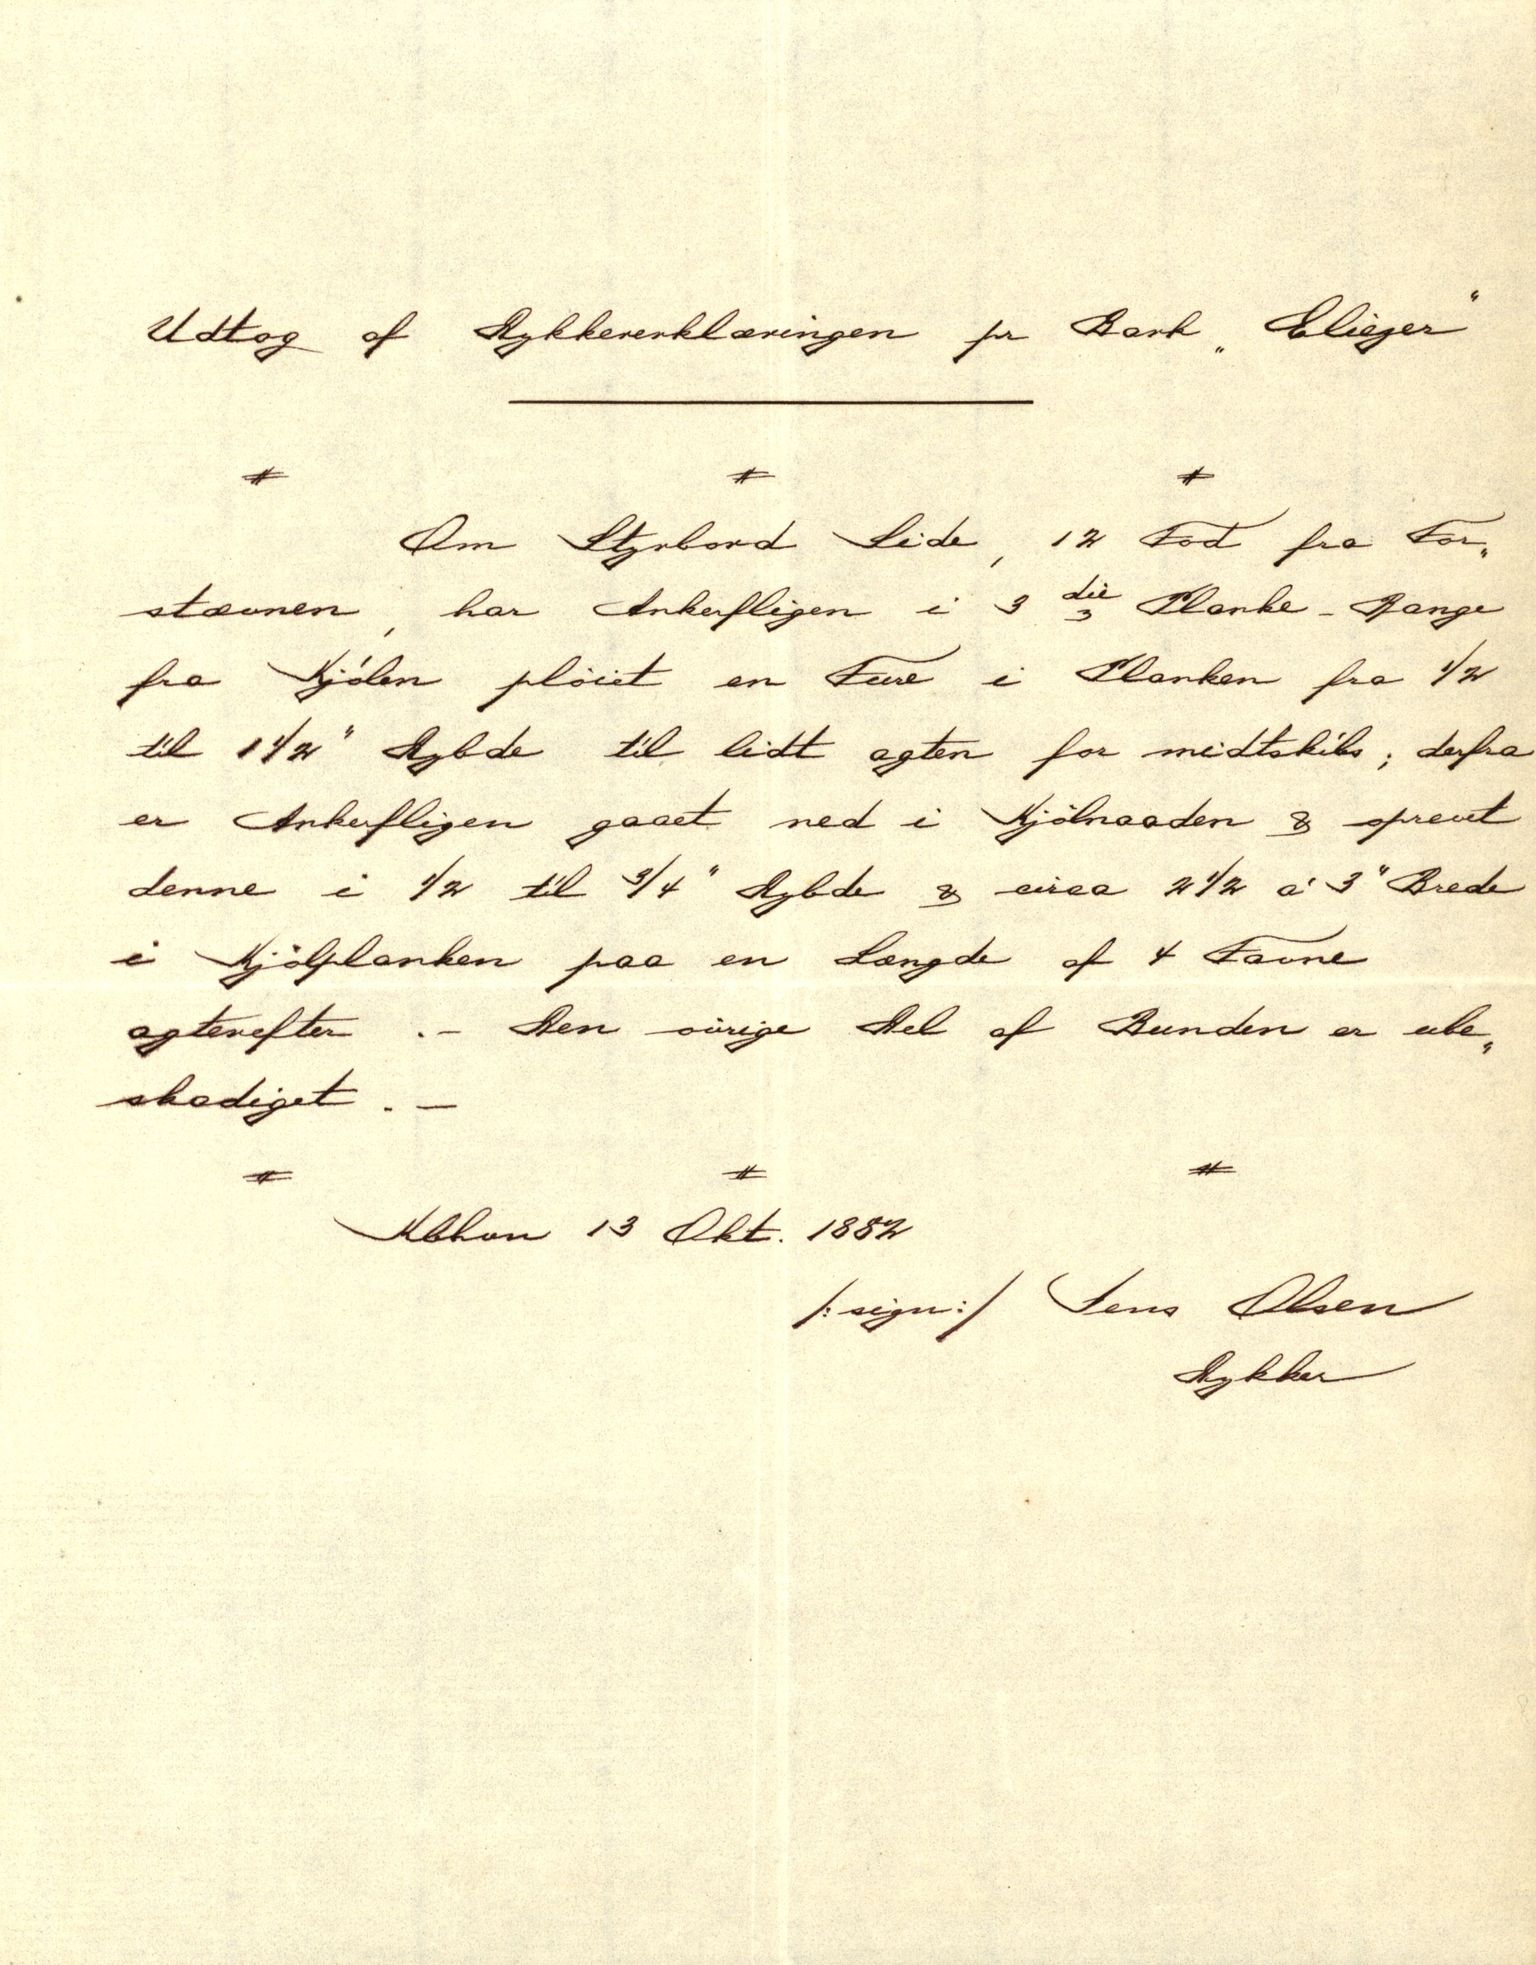 Udtog af Dykkererklæringen pr Bark „Eliezer“
# # #
Om Styrbord Side, 12 Fod fra For„
stævnen, har Ankerfligen i 3 die Planke-Range
fra Kjölen plöiet en Fure i Planken fra 1/2
til 1 1/2" Dybde til lidt agten for midtskibs; derfra
er Ankerfligen gaaet ned i Kjölnaaden &
denne i 1/2 til 3/4" Dybde & circa 2 1/2 a' 3" Brede
i Kjölplanken paa en Længde af 4 Favne
agterefter .- Den övrige Del af Bunden er ube„
skadiget .-
# # #
Kbhvn 13 Okt. 1882
/: sign :/ Jens Olsen
Dykker